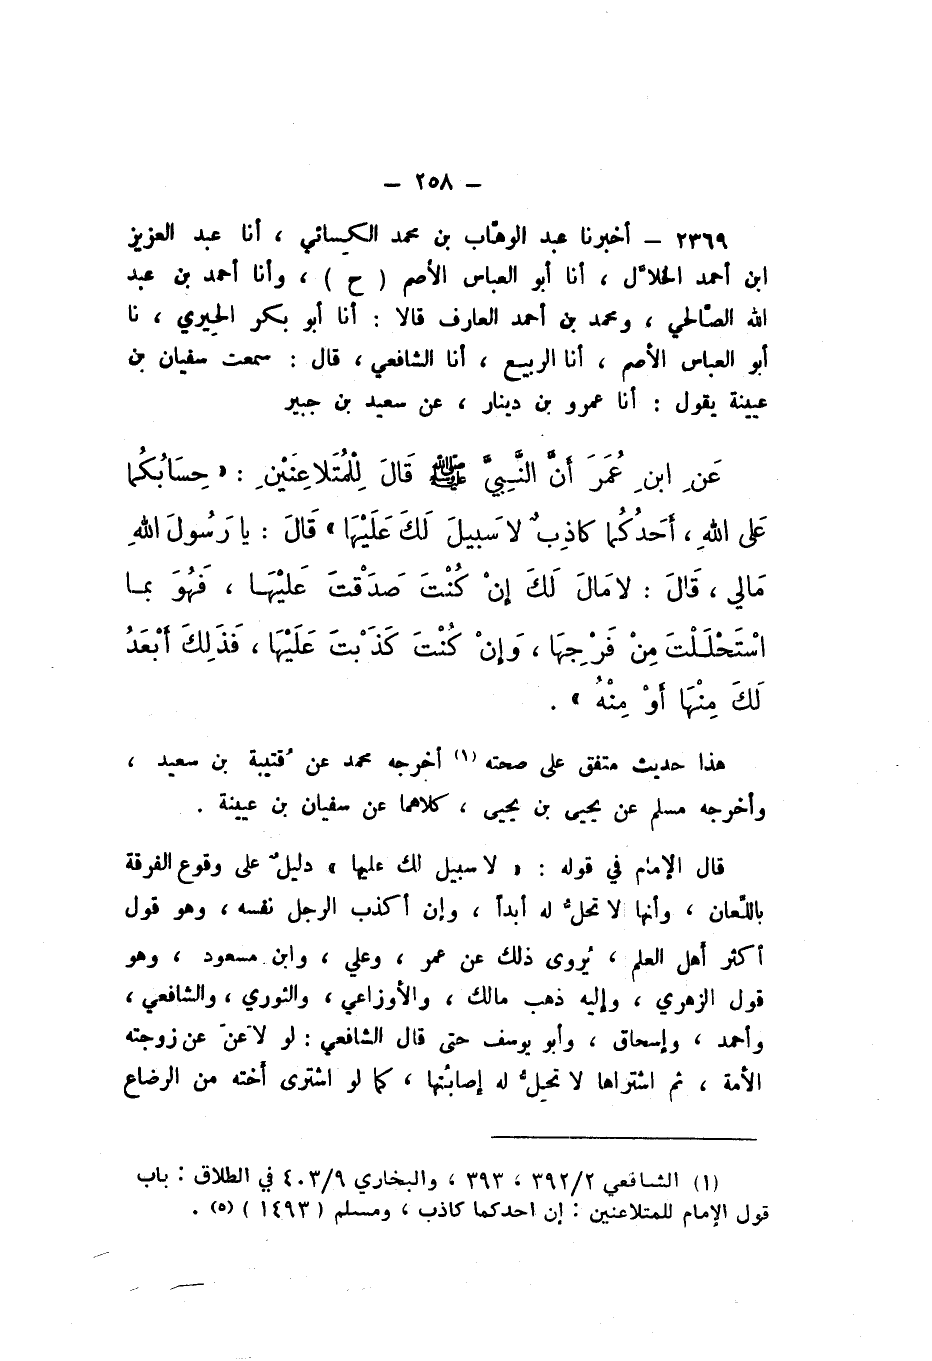 – ٢٥٨ –
٢٣٦٩ – أخبرنا عبد الوهّاب بن محمد الكسائي ، أنا عبد العزيز
ابن أحمد الخلاّل ، أنا أبو العباس الأصم ( ح ) ، وأنا أحمد بن عبد
الله الصّالحي ، ومحمد بن أحمد العارف قالا : أنا أبو بكر الحيري ، نا
أبو العباس الأصم ، أنا الربيع ، أنا الشافعي ، قال : سمعت سفيان بن
عيينة يقول : أنا عمرو بن دينار ، عن سعيد بن جبير
عَنِ ابنِ عُمَرَ أَنَّ النَّبِيَّ ﷺ قَالَ لِلْمُتَلاعِنَيْنِ : « حِسَابُكُما
عَلى اللهِ ، أَحَدُكُما كاذِبٌ لا سَبِيلَ لَكَ عَلَيْهَا » قَالَ : يا رَسُولَ اللهِ
مَالي ، قَالَ : لا مَالَ لَكَ إِنْ كُنْتَ صَدَقْتَ عَلَيْهَا ، فَهُوَ بما
اسْتَحْلَلْتَ مِنْ فَرْجِهَا ، وَإِنْ كُنْتَ كَذَبْتَ عَلَيْهَا ، فَذَلِكَ أَبْعَدُ
لَكَ مِنْهَا أَوْ مِنْهُ » .
هذا حديث متفق على صحته (١) أخرجه محمد عن قُتيبة بن سعيد ،
وأخرجه مسلم عن يحيى بن يحيى ، كلاهما عن سفيان بن عيينة .
قال الإمام في قوله : « لا سبيل لك عليها » دليلٌ على وقوع الفرقة
باللّعان ، وأنها لا تحلُّ له أبداً ، وإن أكذب الرجل نفسه ، وهو قول
أكثر أهل العلم ، يُروى ذلك عن عمر ، وعلي ، وابن مسعود ، وهو
قول الزهري ، وإليه ذهب مالك ، والأوزاعي ، والثوري ، والشافعي ،
وأحمد ، وإسحاق ، وأبو يوسف حتى قال الشافعي : لو لاعَنَ عن زوجته
الأمة ، ثم اشتراها لا تحِلُّ له إصابتُها ، كما لو اشترى أخته من الرضاع
(١) الشافعي ٣٩٢/٢ ، ٣٩٣ ، والبخاري ٤٠٣/٩ في الطلاق : باب
قول الإمام للمتلاعنين : إن احدكما كاذب ، ومسلم ( ١٤٩٣ ) (٥) .